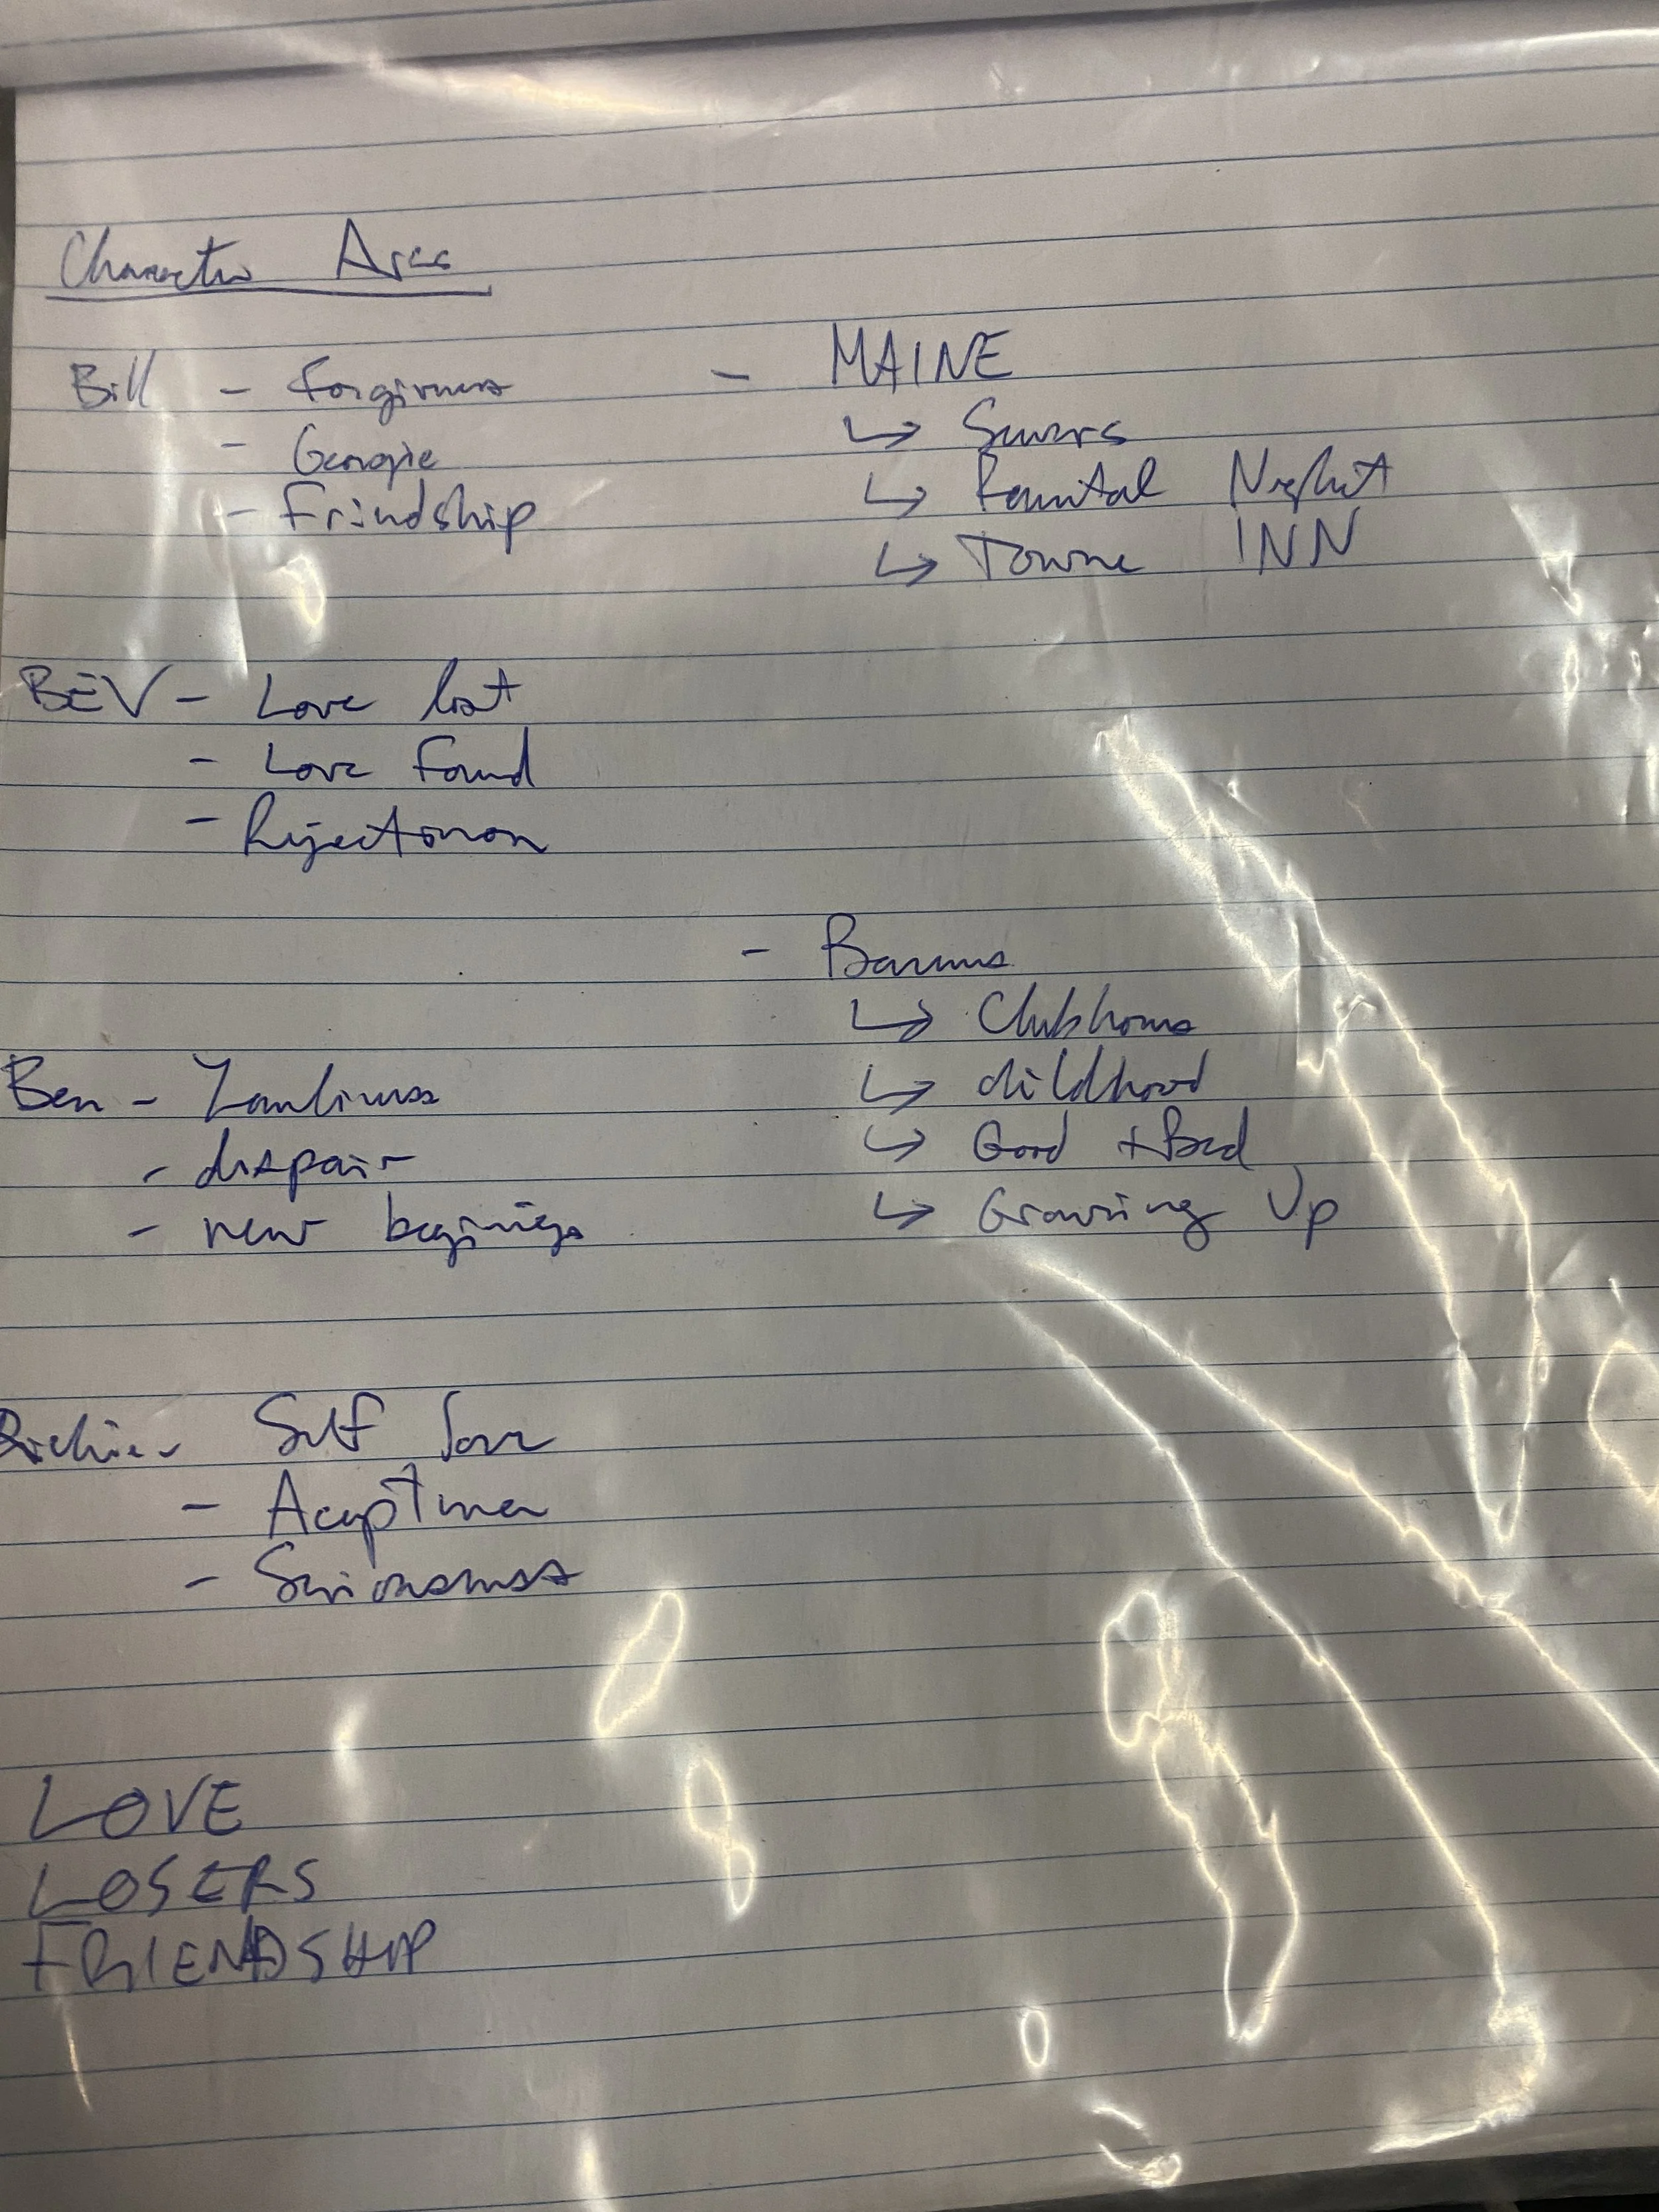 Character Arcs
Bill - Forgivness
- Georgie
- Friendship
- MAINE
↳ Sewers
↳ Parental Neglect
↳ Towne INN
BEV - Love lost
- Love Found
- Rejection
- Barrens
↳ Clubhouse
↳ childhood
↳ Good + Bad
↳ Growing Up
Ben - Lonliness
- despair
- new beginings
Richie - Self Love
- Aceptence
- Seriousness
LOVE
LOSERS
FRIENDSHIP